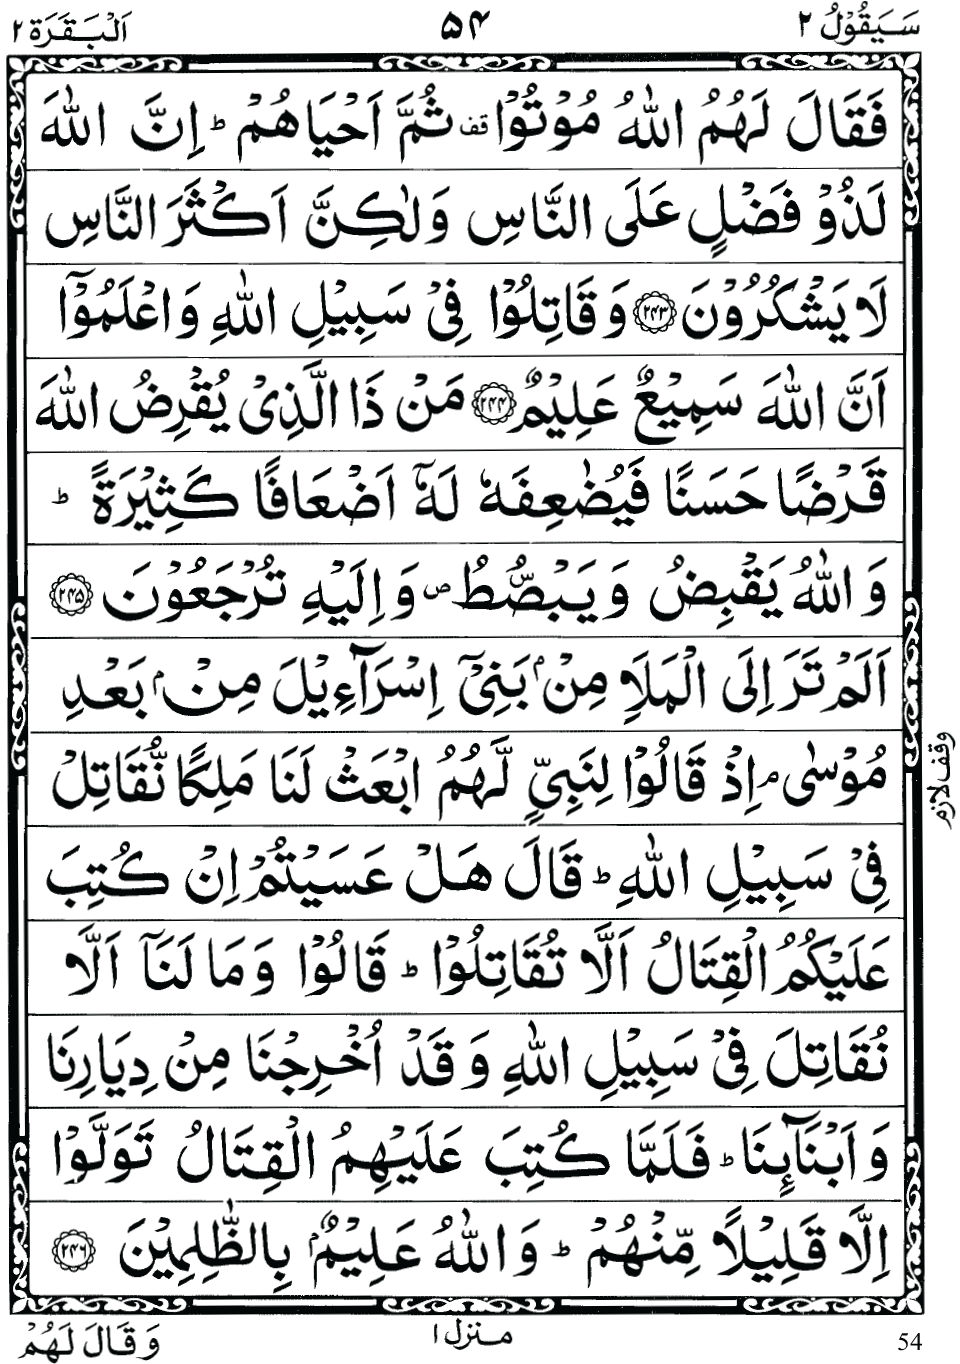 سَيَقُوْلُ ۲
۵۴
اَلْبَقَرَة ۲
فَقَالَ لَهُمُ اللّٰهُ مُوْتُوْا قف ثُمَّ اَحْيَاهُمْ ؕ اِنَّ اللّٰهَ
لَذُوْ فَضْلٍ عَلَى النَّاسِ وَلٰكِنَّ اَكْثَرَ النَّاسِ
لَا يَشْكُرُوْنَ ﴿۲۴۳﴾ وَقَاتِلُوْا فِيْ سَبِيْلِ اللّٰهِ وَاعْلَمُوْٓا
اَنَّ اللّٰهَ سَمِيْعٌ عَلِيْمٌ ﴿۲۴۴﴾ مَنْ ذَا الَّذِيْ يُقْرِضُ اللّٰهَ
قَرْضًا حَسَنًا فَيُضٰعِفَهٗ لَهٗٓ اَضْعَافًا كَثِيْرَةً ؕ
وَاللّٰهُ يَقْبِضُ وَيَبْصُّطُ ۪ وَاِلَيْهِ تُرْجَعُوْنَ ﴿۲۴۵﴾
اَلَمْ تَرَ اِلَى الْمَلَاِ مِنْۢ بَنِيْٓ اِسْرَآءِيْلَ مِنْۢ بَعْدِ
مُوْسٰى ۘ اِذْ قَالُوْا لِنَبِيٍّ لَّهُمُ ابْعَثْ لَنَا مَلِكًا نُّقَاتِلْ
وقف لازم
فِيْ سَبِيْلِ اللّٰهِ ؕ قَالَ هَلْ عَسَيْتُمْ اِنْ كُتِبَ
عَلَيْكُمُ الْقِتَالُ اَلَّا تُقَاتِلُوْا ؕ قَالُوْا وَمَا لَنَآ اَلَّا
نُقَاتِلَ فِيْ سَبِيْلِ اللّٰهِ وَقَدْ اُخْرِجْنَا مِنْ دِيَارِنَا
وَاَبْنَآئِنَا ؕ فَلَمَّا كُتِبَ عَلَيْهِمُ الْقِتَالُ تَوَلَّوْا
اِلَّا قَلِيْلًا مِّنْهُمْ ؕ وَاللّٰهُ عَلِيْمٌۢ بِالظّٰلِمِيْنَ ﴿۲۴۶﴾
54
منزل ۱
وَقَالَ لَهُمْ